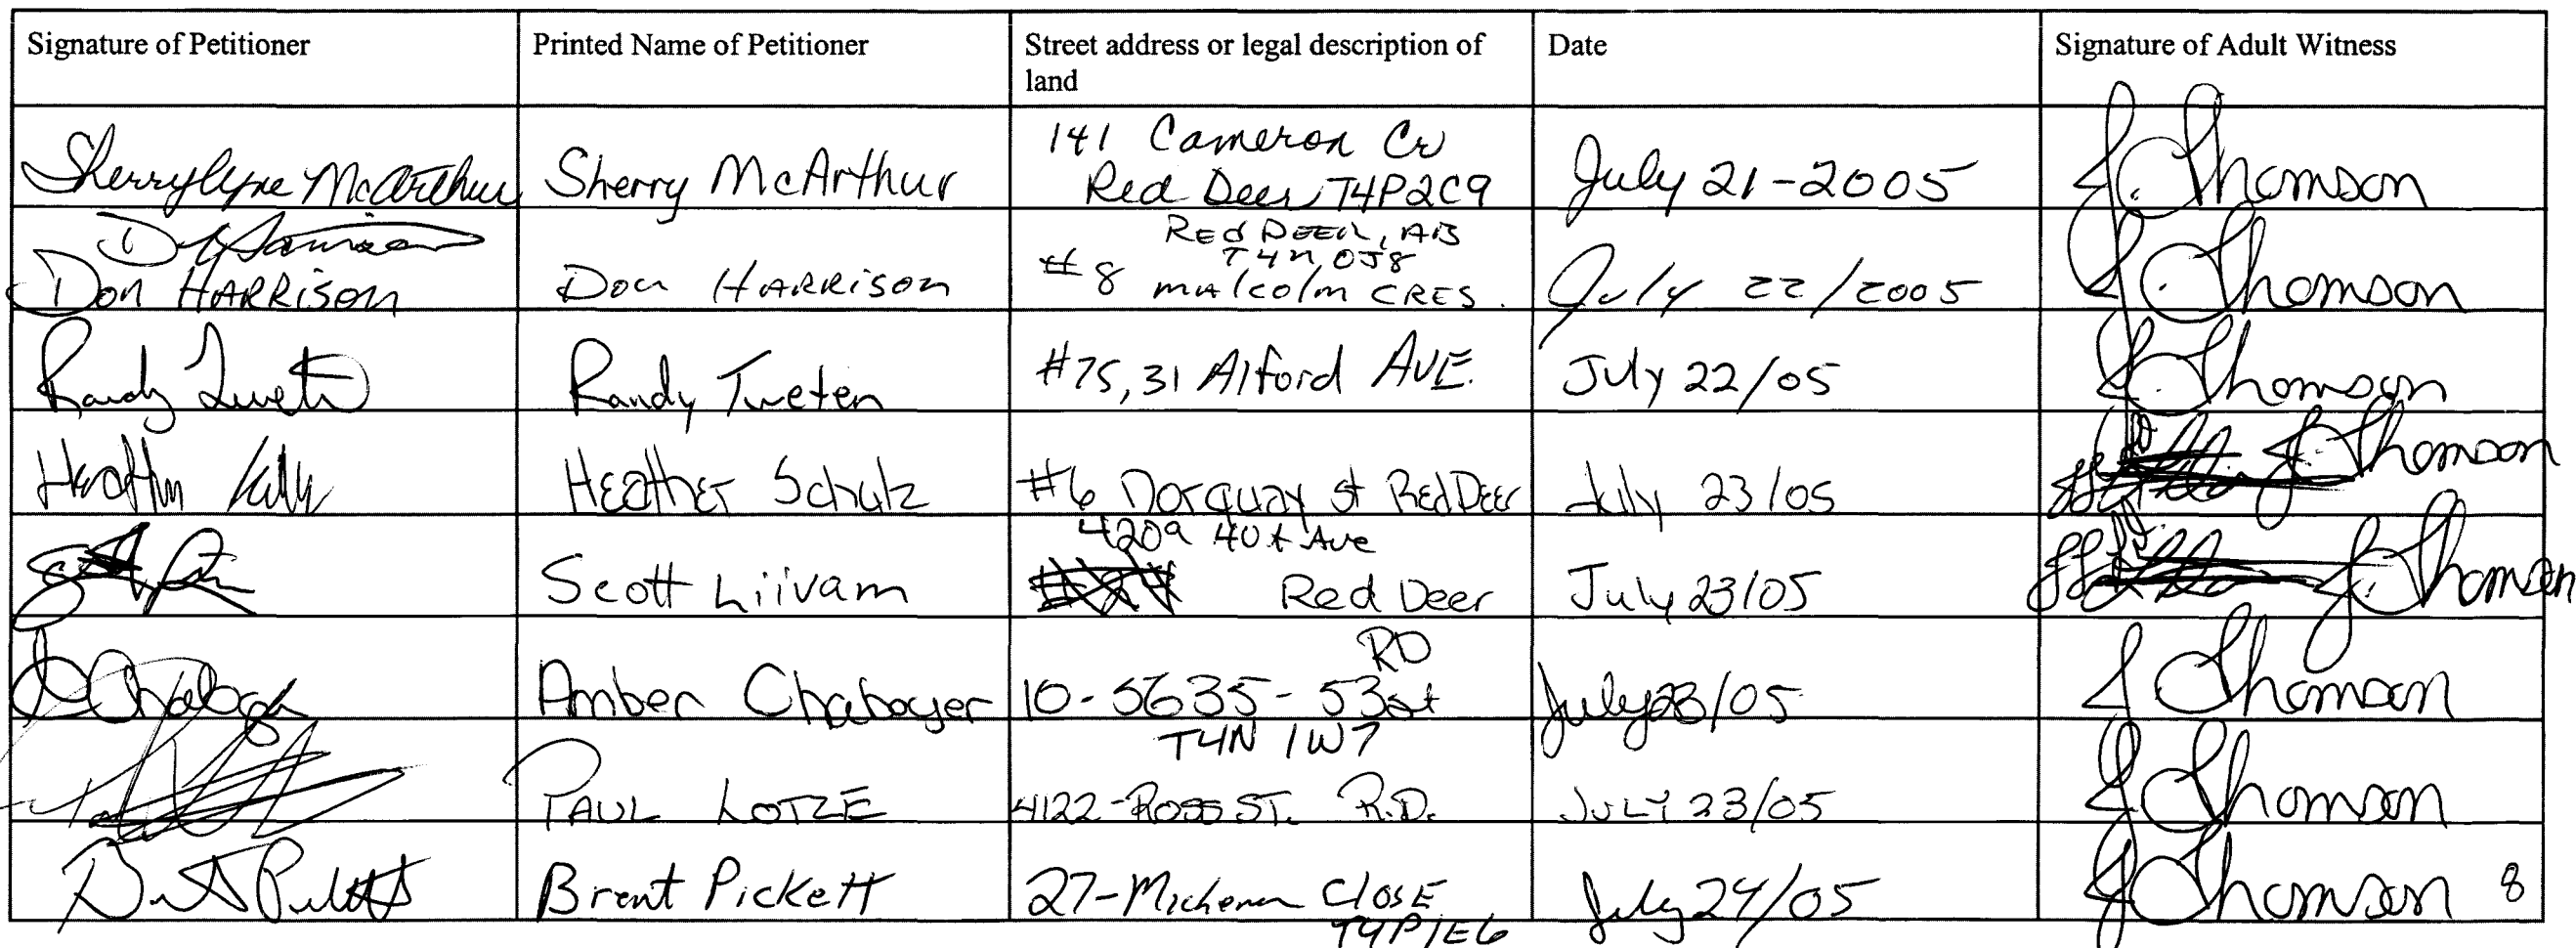 Signature of Petitioner Printed Name of Petitioner Street address or legal description of land Date Signature of Adult Witness
Sherrylyne McArthur Sherry McArthur 141 Cameron Cr Red Deer T4P2C9 July 21-2005 J. Thomson
Don HARRISON Don HARRISON Red DEER, AB T4N 0J8 #8 malcolm CRES. July 22/2005 J. Thomson
Randy Tweten Randy Tweten #75, 31 Alford AVE. July 22/05 J. Thomson
Heather Heather Schulz #6 Dorquay st Red Deer July 23/05 J. Thomson
Scott Liivam 4209 40 Ave Red Deer July 23/05 J. Thomson
Chaboyer Amber Chaboyer 10-5635-53st RD T4N 1W7 July 23/05 J Thomson
PAUL LOTZE 4122-ROSS ST. R.D. JULY 23/05 J Thomson
Brent Pickett Brent Pickett 27-Michener Close T4P1E6 July 24/05 J Thomson 8